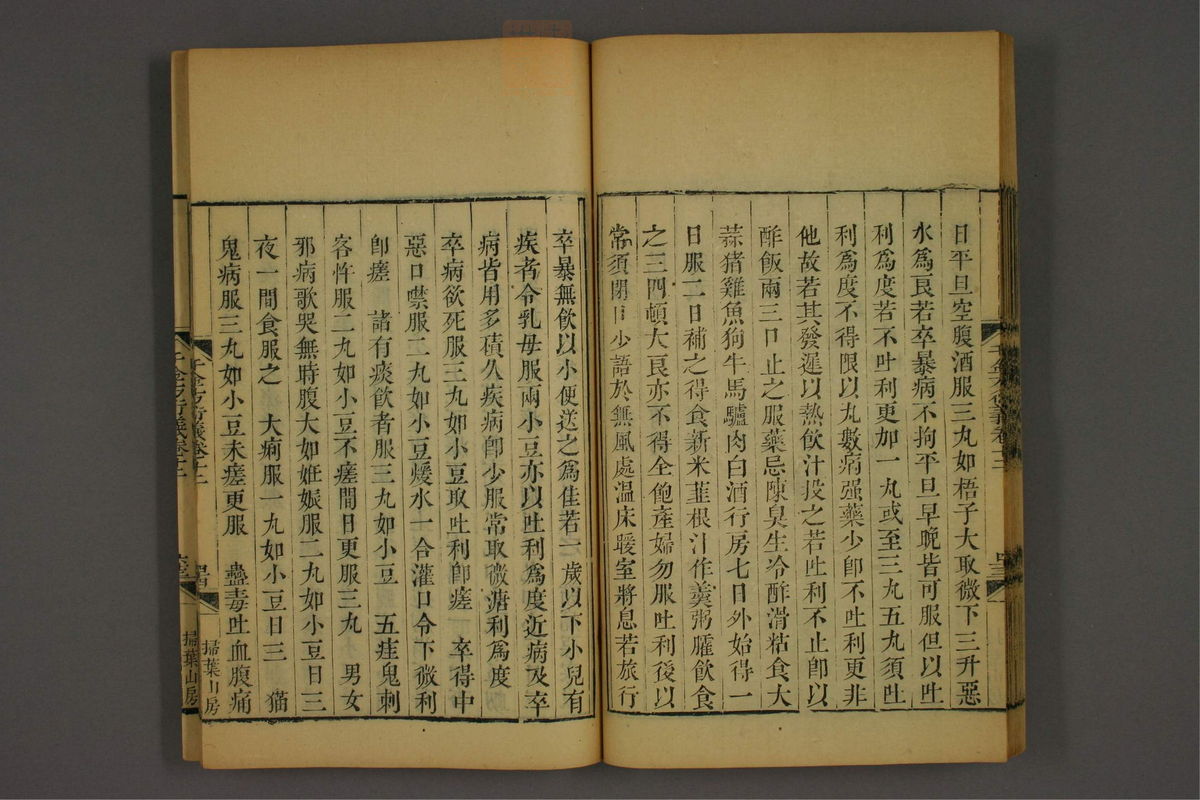 日平旦空腹酒服三丸如梧子大取微下三升惡
水爲良若卒暴病不拘平旦早晚皆可服但以吐
利爲度若不吐利更加一丸或至三丸五丸須吐
利爲度不得限以丸數病强藥少卽不吐利更非
他故若其發遲以熱飲汁投之若吐利不止卽以
酢飯兩三口止之服藥忌陳臭生冷酢滑粘食大
蒜猪雞魚狗牛馬驢肉白酒行房七日外始得一
日服二日補之得食新米韭根汁作羹粥臛飲食
之三四頓大良亦不得全飽產婦勿服吐利後以
常須閉口少語於無風處溫床暖室將息若旅行
卒暴無飲以小便送之爲佳若一歲以下小兒有
疾者令乳母服兩小豆亦以吐利爲度近病及卒
病皆用多積久疾病卽少服常取微溏利爲度
卒病欲死服三丸如小豆取吐利卽瘥 卒得中
惡口噤服二丸如小豆煖水一合灌口令下微利
卽瘥 諸有痰飲者服三丸如小豆 五疰鬼刺
客忤服二丸如小豆不瘥間日更服三丸 男女
邪病歌哭無時腹大如妊娠服二丸如小豆日三
夜一間食服之 大痢服一丸如小豆日三 猫
鬼病服三丸如小豆未瘥更服 蠱毒吐血腹痛
千金方衍義卷十二
掃葉山房
掃葉山房